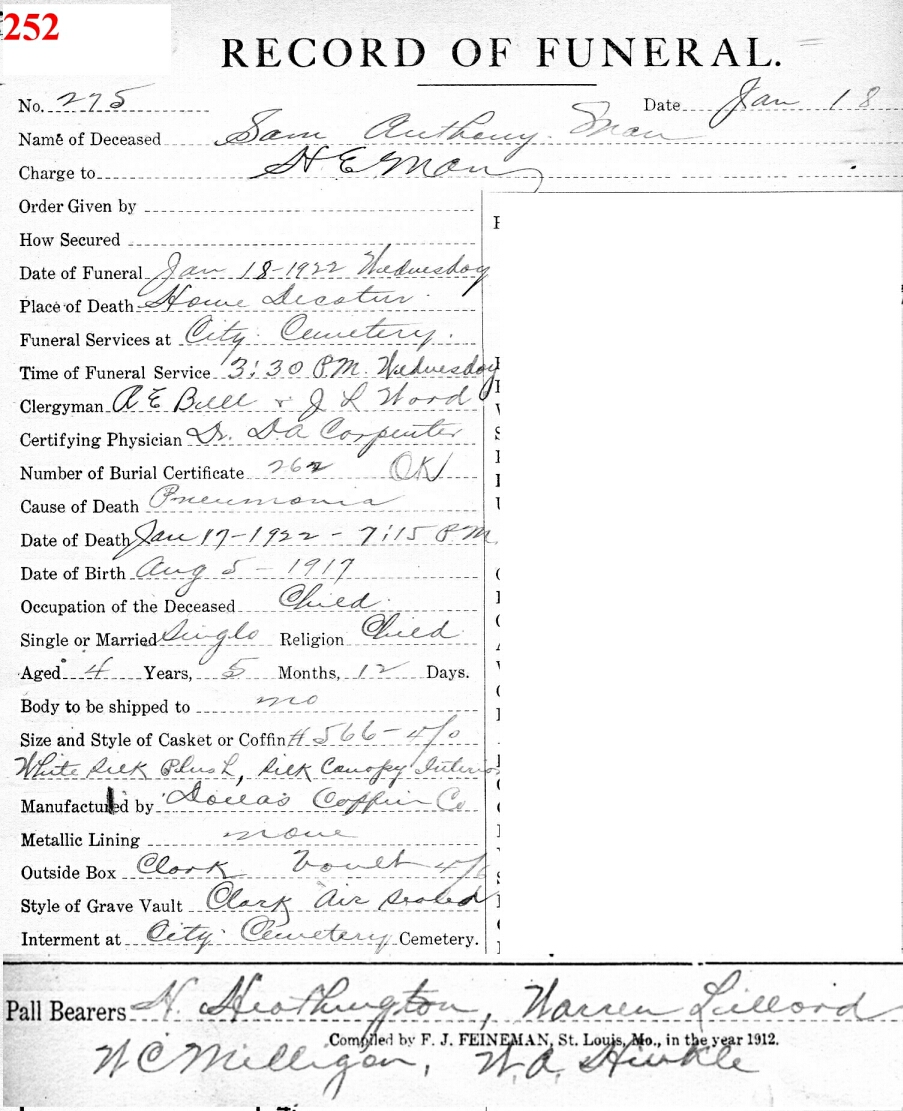 252
RECORD OF FUNERAL.
No. 275 Date Jan 18
Name of Deceased Sam Anthony Man
Charge to H E Man
Order Given by
How Secured
Date of Funeral Jan 18-1922 Wednesday
Place of Death Home Decatur
Funeral Services at City Cemetery.
Time of Funeral Service 3:30 P.M. Wednesday
Clergyman A E Bell & J L Ward
Certifying Physician Dr. D A Carpenter
Number of Burial Certificate 262 OK
Cause of Death Pneumonia
Date of Death Jan 17-1922 - 7:15 P M.
Date of Birth Aug 5 - 1917
Occupation of the Deceased Child
Single or Married Single Religion Child
Aged 4 Years, 5 Months, 12 Days.
Body to be shipped to no
Size and Style of Casket or Coffin # 566 - 4/0
White Silk Plush, Silk Canopy Interior
Manufactured by Dallas Coffin Co
Metallic Lining none
Outside Box Clark Vault 4/
Style of Grave Vault Clark Air Sealed
Interment at City Cemetery Cemetery.
Pall Bearers H. Heathington, Warren Lillard
Compiled by F. J. FEINEMAN, St. Louis, Mo., in the year 1912.
W C Milligan, W. A. Hinkle